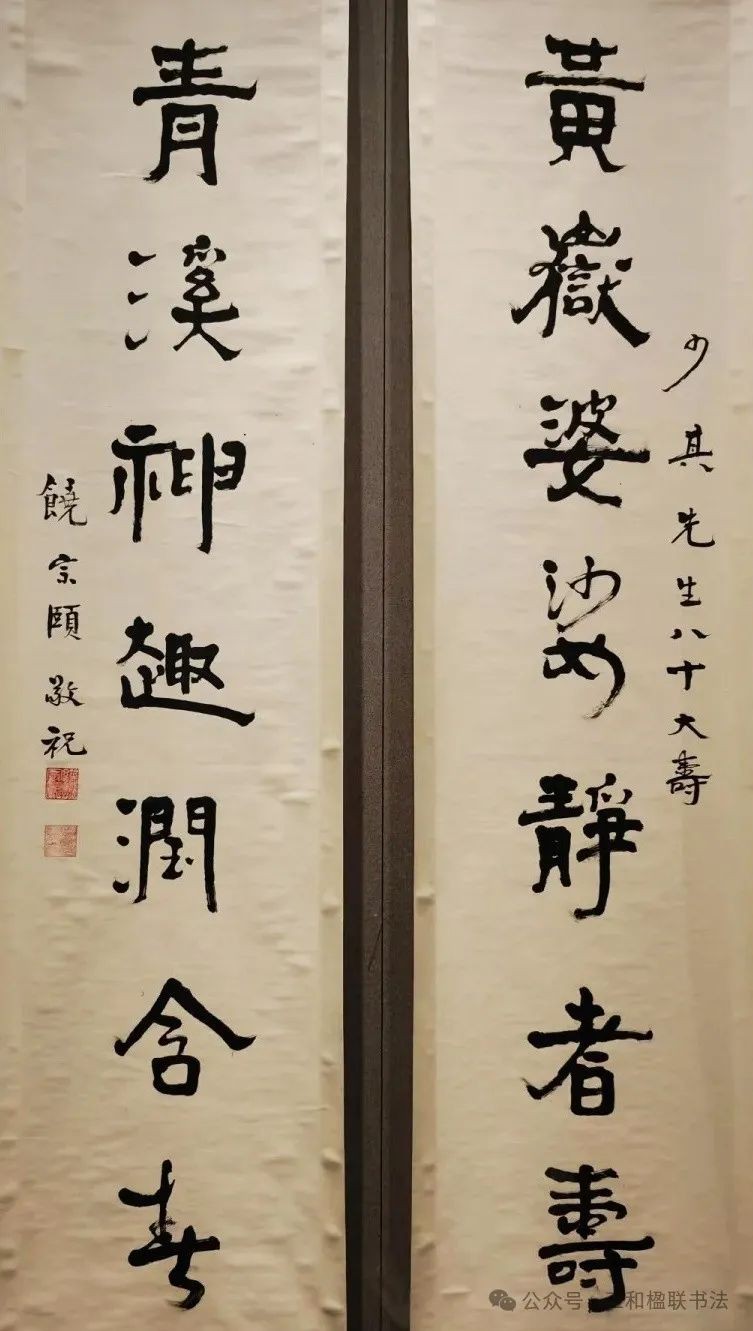 黃嶽婆娑靜者壽
少其先生八十大壽
青溪神趣潤含春
饒宗頤敬祝
公众号·三和楹联书法